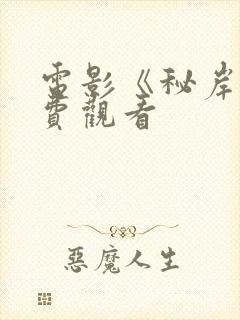 電影《秘岸
費觀看
惡魔人生